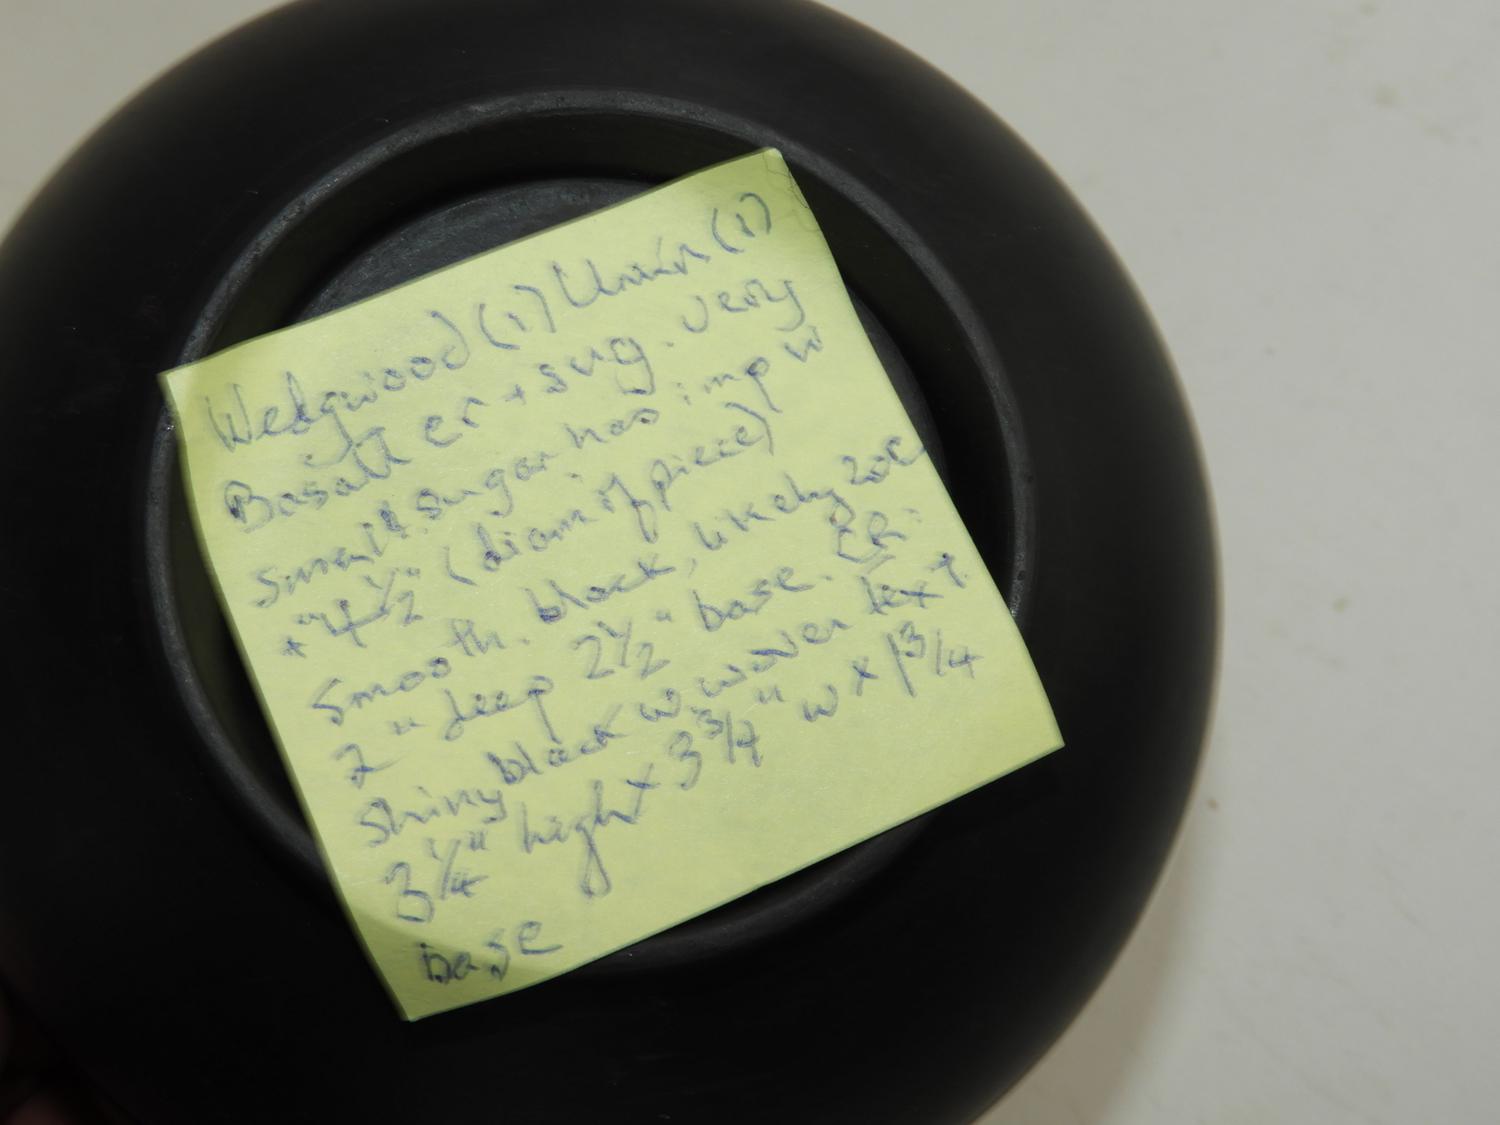 Wedgwood (1) Unkn (1)
Basalt cr + sug. very
small. sugar has imp W
+ "4 1/2" (diam of piece)
smooth. black, likely 20c
2" deep 2 1/2" base. CR:
shiny black w. woven text.
3 1/4" high x 3 3/4" w x 1 3/4
base